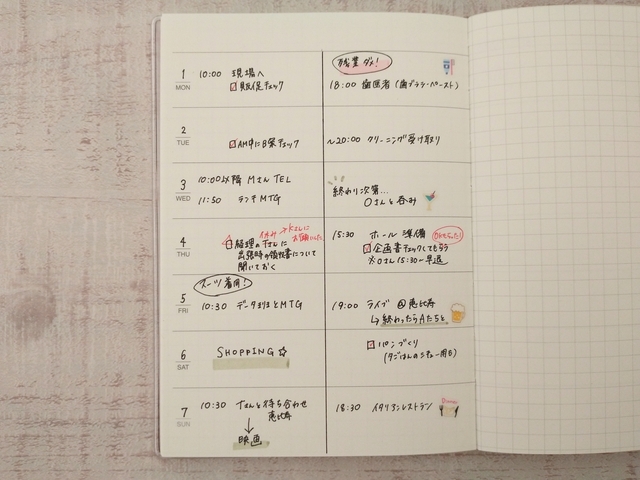 1
MON
10:00 現場へ
販促チェック
残業ダメ!
18:00 歯医者 (歯ブラシ・ペースト)
2
TUE
AM中に日報チェック
~20:00 クリーニング受け取り
3
WED
10:00以降 MさんTEL
11:50 ランチMTG
終わり次第...
Oさんと呑み
4
THU
休み→Kさんに
お願いした
経理のTさんに
出張時の領収書について
聞いておく
15:30 ホール準備
企画書チェックしてもらう
※Oさん15:30~早退
5
FRI
スーツ着用!
10:30 データまとめMTG
19:00 ライブ @恵比寿
↳終わったらAたちと
6
SAT
SHOPPING☆
パンづくり
(夕ごはんのシチュー用も)
7
SUN
10:30 Tさんと待ち合わせ
恵比寿
↓
映画
18:30 イタリアンレストラン
Dinner